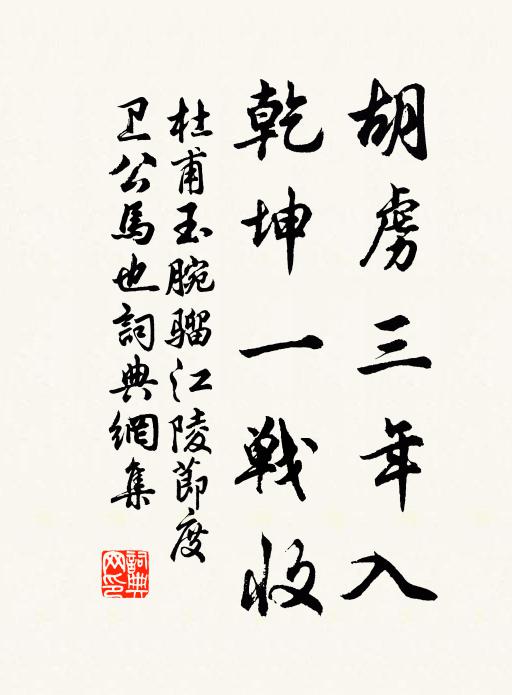 胡虏三年入
乾坤一戦收
杜甫玉腕骝江陵節度
卫公馬也詞典網集
詞典
网印